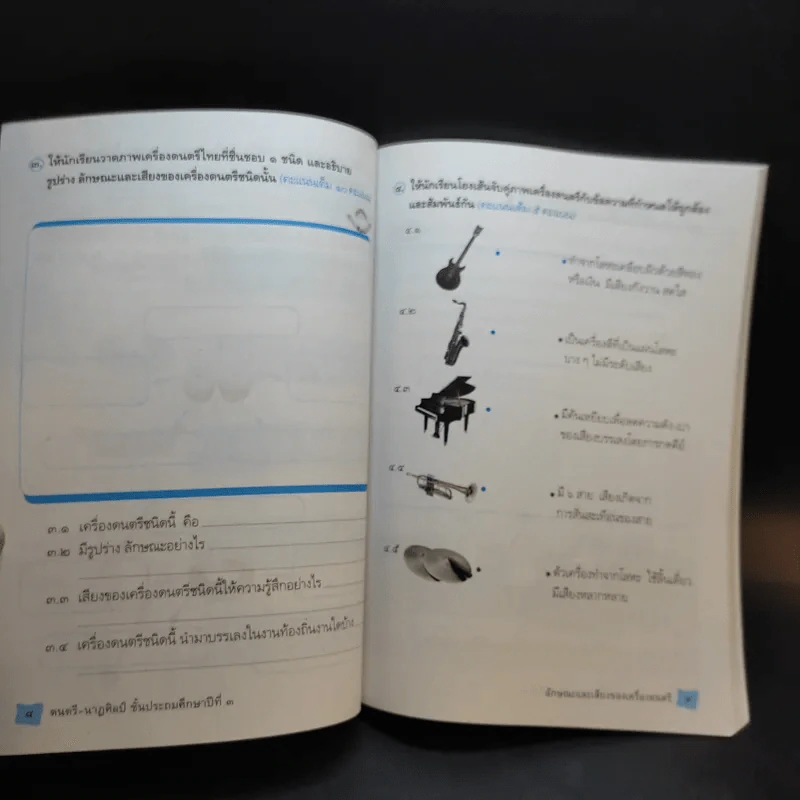 ๓. ให้นักเรียนวาดภาพเครื่องดนตรีไทยที่ชื่นชอบ ๑ ชนิด และอธิบาย
รูปร่าง ลักษณะและเสียงของเครื่องดนตรีชนิดนั้น (คะแนนเต็ม ๑๐ คะแนน)
๓.๑ เครื่องดนตรีชนิดนี้ คือ
๓.๒ มีรูปร่าง ลักษณะอย่างไร
๓.๓ เสียงของเครื่องดนตรีชนิดนี้ให้ความรู้สึกอย่างไร
๓.๔ เครื่องดนตรีชนิดนี้ นำมาบรรเลงในงานท้องถิ่นงานใดบ้าง
๘ ดนตรี-นาฏศิลป์ ชั้นประถมศึกษาปีที่ ๓
๔. ให้นักเรียนโยงเส้นจับคู่ภาพเครื่องดนตรีกับข้อความที่กำหนดให้ถูกต้อง
และสัมพันธ์กัน (คะแนนเต็ม ๕ คะแนน)
๔.๑
• ทำจากโลหะเคลือบผิวด้วยสีทอง
หรือเงิน มีเสียงกังวาน สดใส
๔.๒
• เป็นเครื่องตีที่เป็นแผ่นโลหะ
บาง ๆ ไม่มีระดับเสียง
๔.๓
• มีคันเหยียบเพื่อลดความดัง-เบา
ของเสียงบรรเลงโดยการกดคีย์
๔.๔
• มี ๖ สาย เสียงเกิดจาก
การสั่นสะเทือนของสาย
๔.๕
• ตัวเครื่องทำจากโลหะ ใช้ลิ้นเดี่ยว
มีเสียงหลากหลาย
ลักษณะและเสียงของเครื่องดนตรี